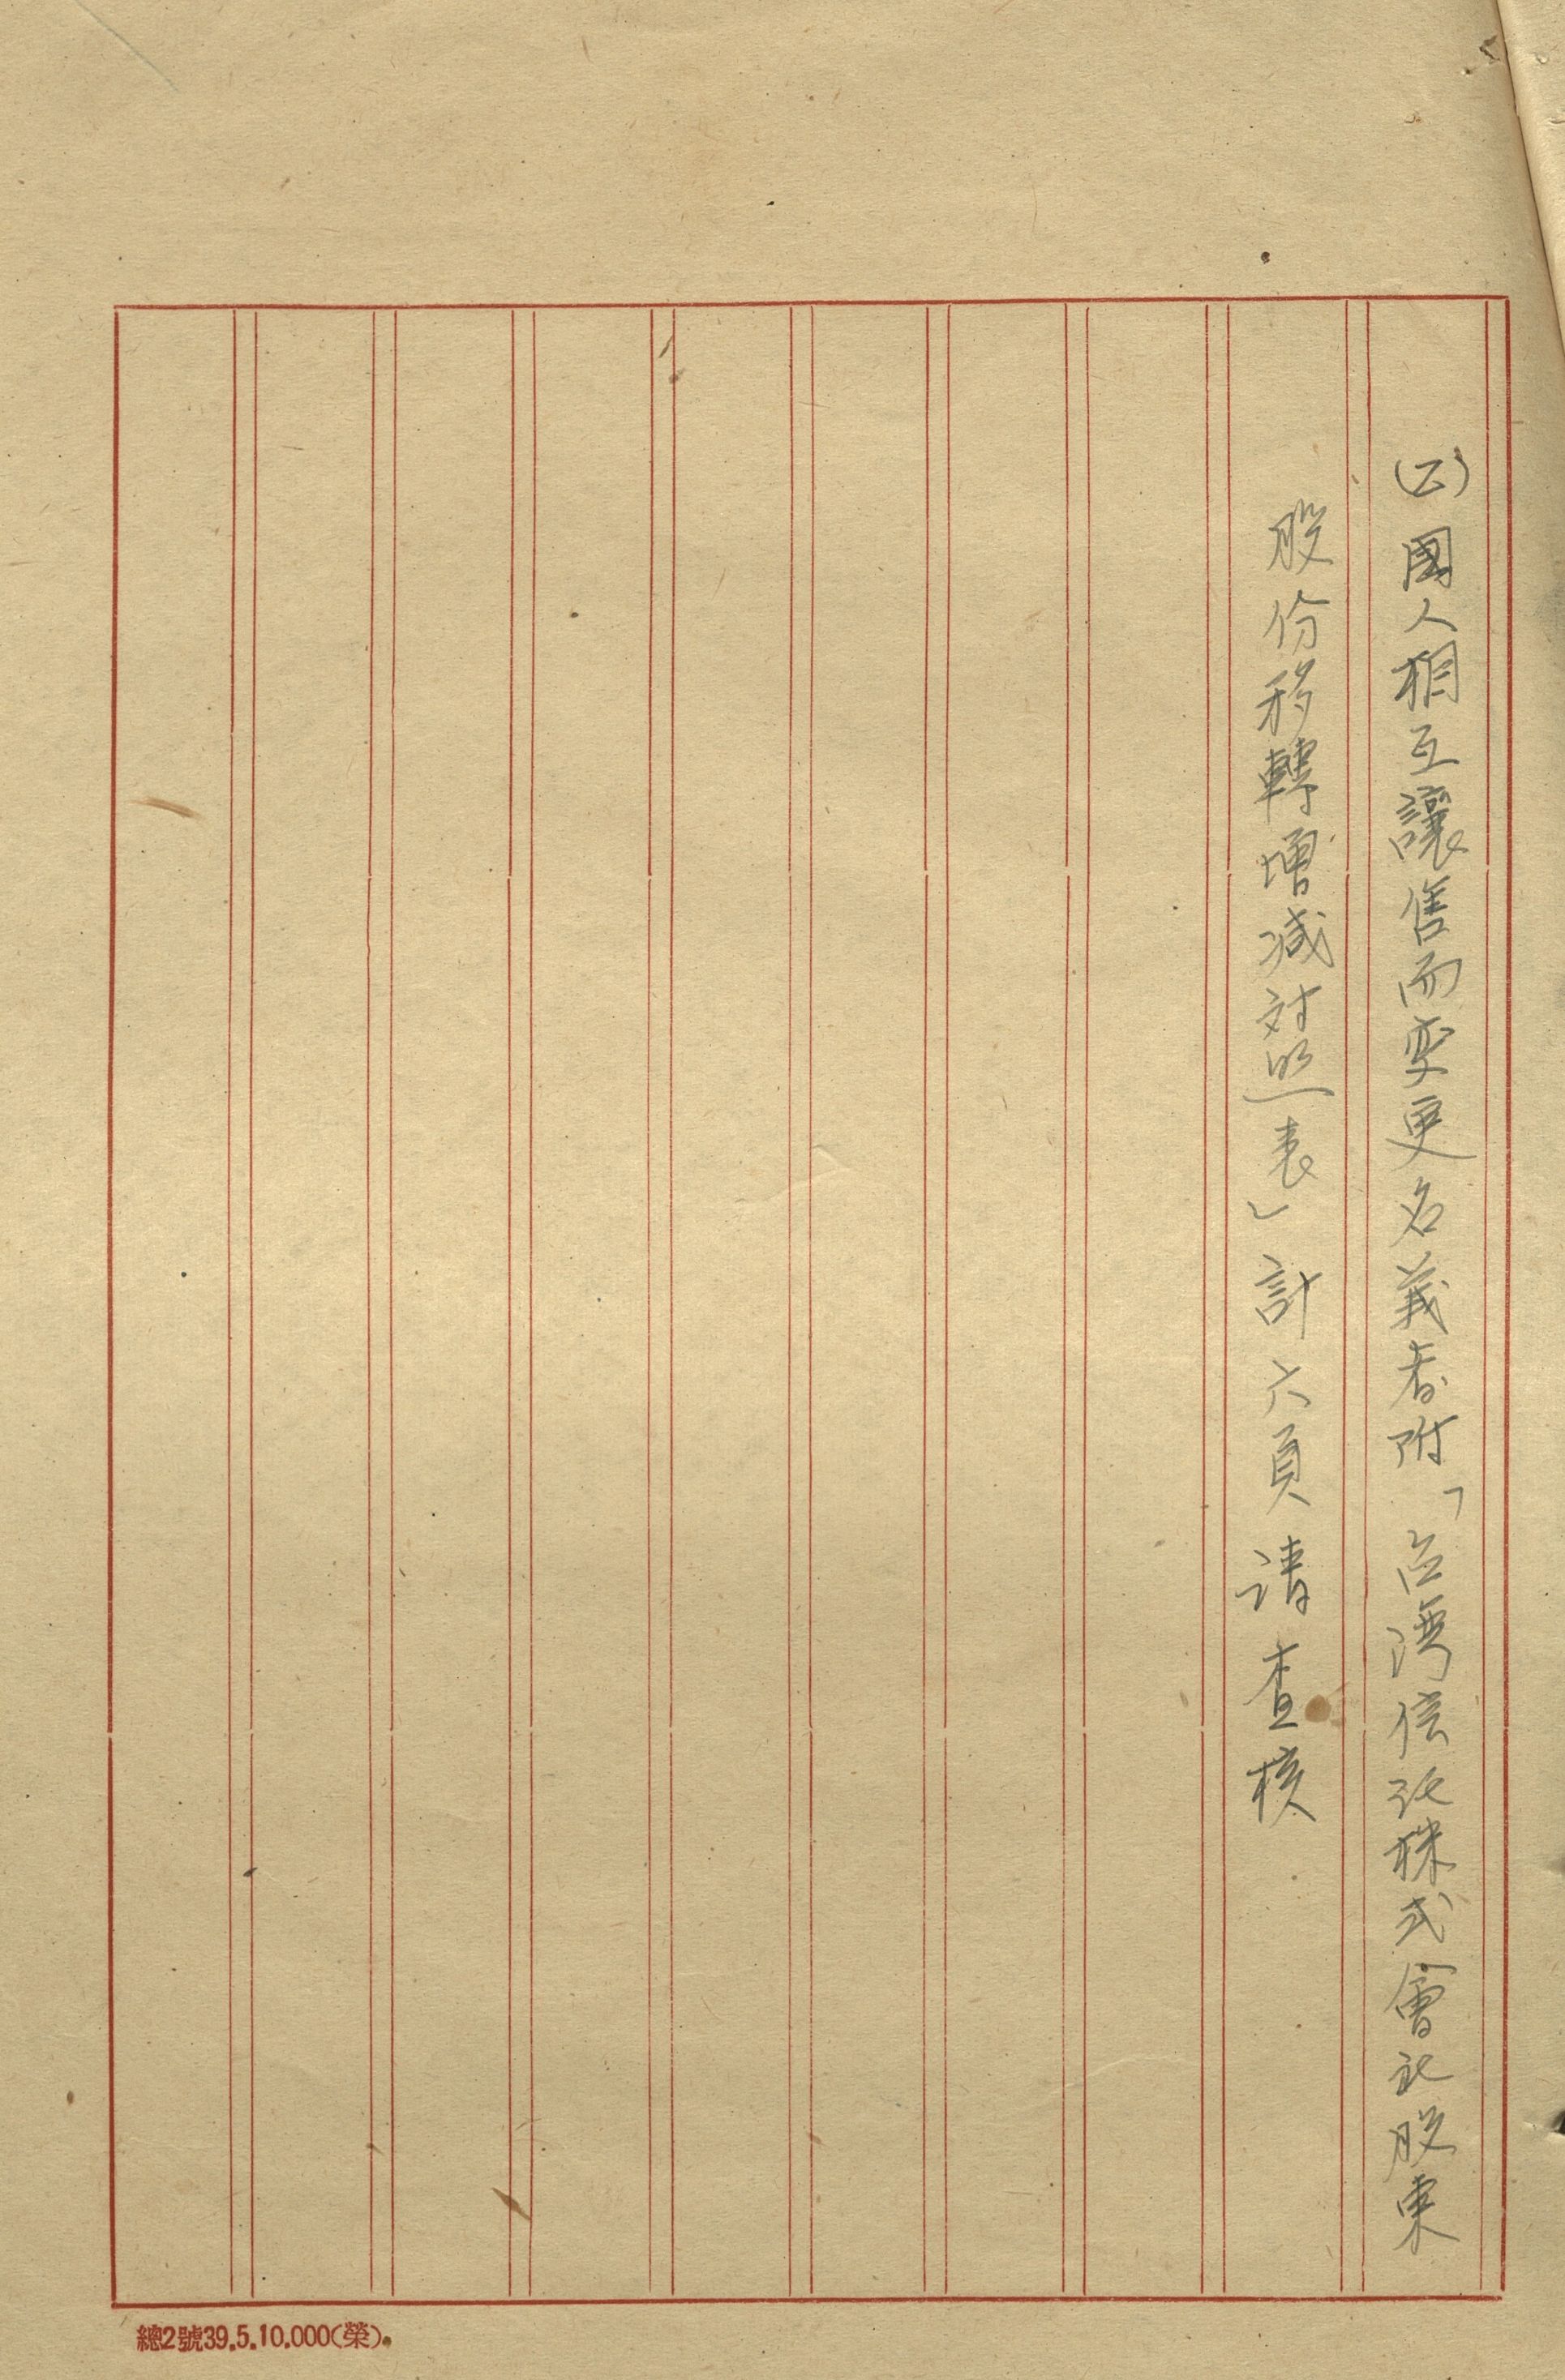 (乙)國人相互讓售而变更名義者附「台湾信託株式會社股東
股份移轉增減对照表」計六頁請查核
總2號39.5.10.000(榮).